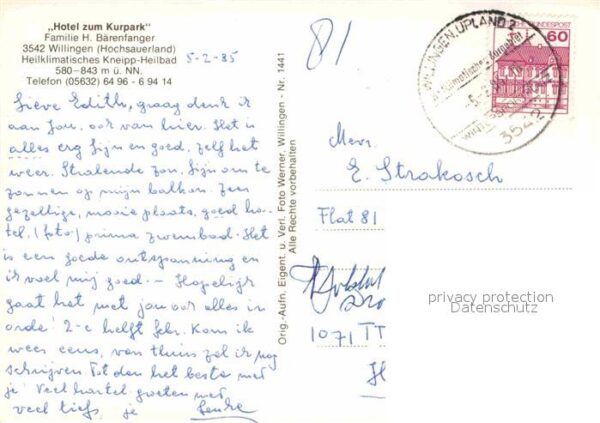 „Hotel zum Kurpark"
Familie H. Bärenfanger
3542 Willingen (Hochsauerland)
Heilklimatisches Kneipp-Heilbad
580–843 m ü. NN.
Telefon (05632) 64 96 - 6 94 14
5-2-85
Lieve Edith, graag denk ik
aan Jou, ook van hier. Het is
alles erg fijn en goed, zelf het
weer. Stralende zon. Fijn om te
zonnen op mijn balkon. Zeer
gezellige, mooie plaats, goed ho-
tel, (foto) prima zwembad. Het
is een goede ontspanning en
ik voel mij goed. — Hopelijk
gaat het met jou ook alles in
orde! 2-e helft febr. kom ik
weer eens, van thuis zal ik nog
schrijven Tot dan het beste met
je! Veel hartel groeten met
veel liefs je
Orig.-Aufn. Eigent. u. Verl. Foto Werner, Willingen - Nr. 1441
Alle Rechte vorbehalten
81
WILLINGEN, UPLAND 2
3542
BUNDESPOST
60
Mevr.
E. Strakosch
Flat 81
1071 TT
privacy protection
Datenschutz